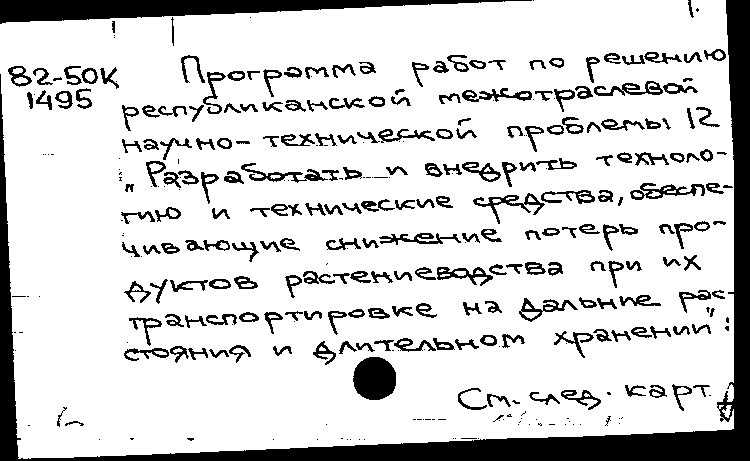 82-50К Программа работ по решению
1495 республиканской межотраслевой
научно-технической проблемы 12
„Разработать и внедрить техноло-
гию и технические средства, обеспе-
чивающие снижение потерь про-
дуктов растениеводства при их
транспортировке на дальние рас-
стояния и длительном хранении":
См. след. карт